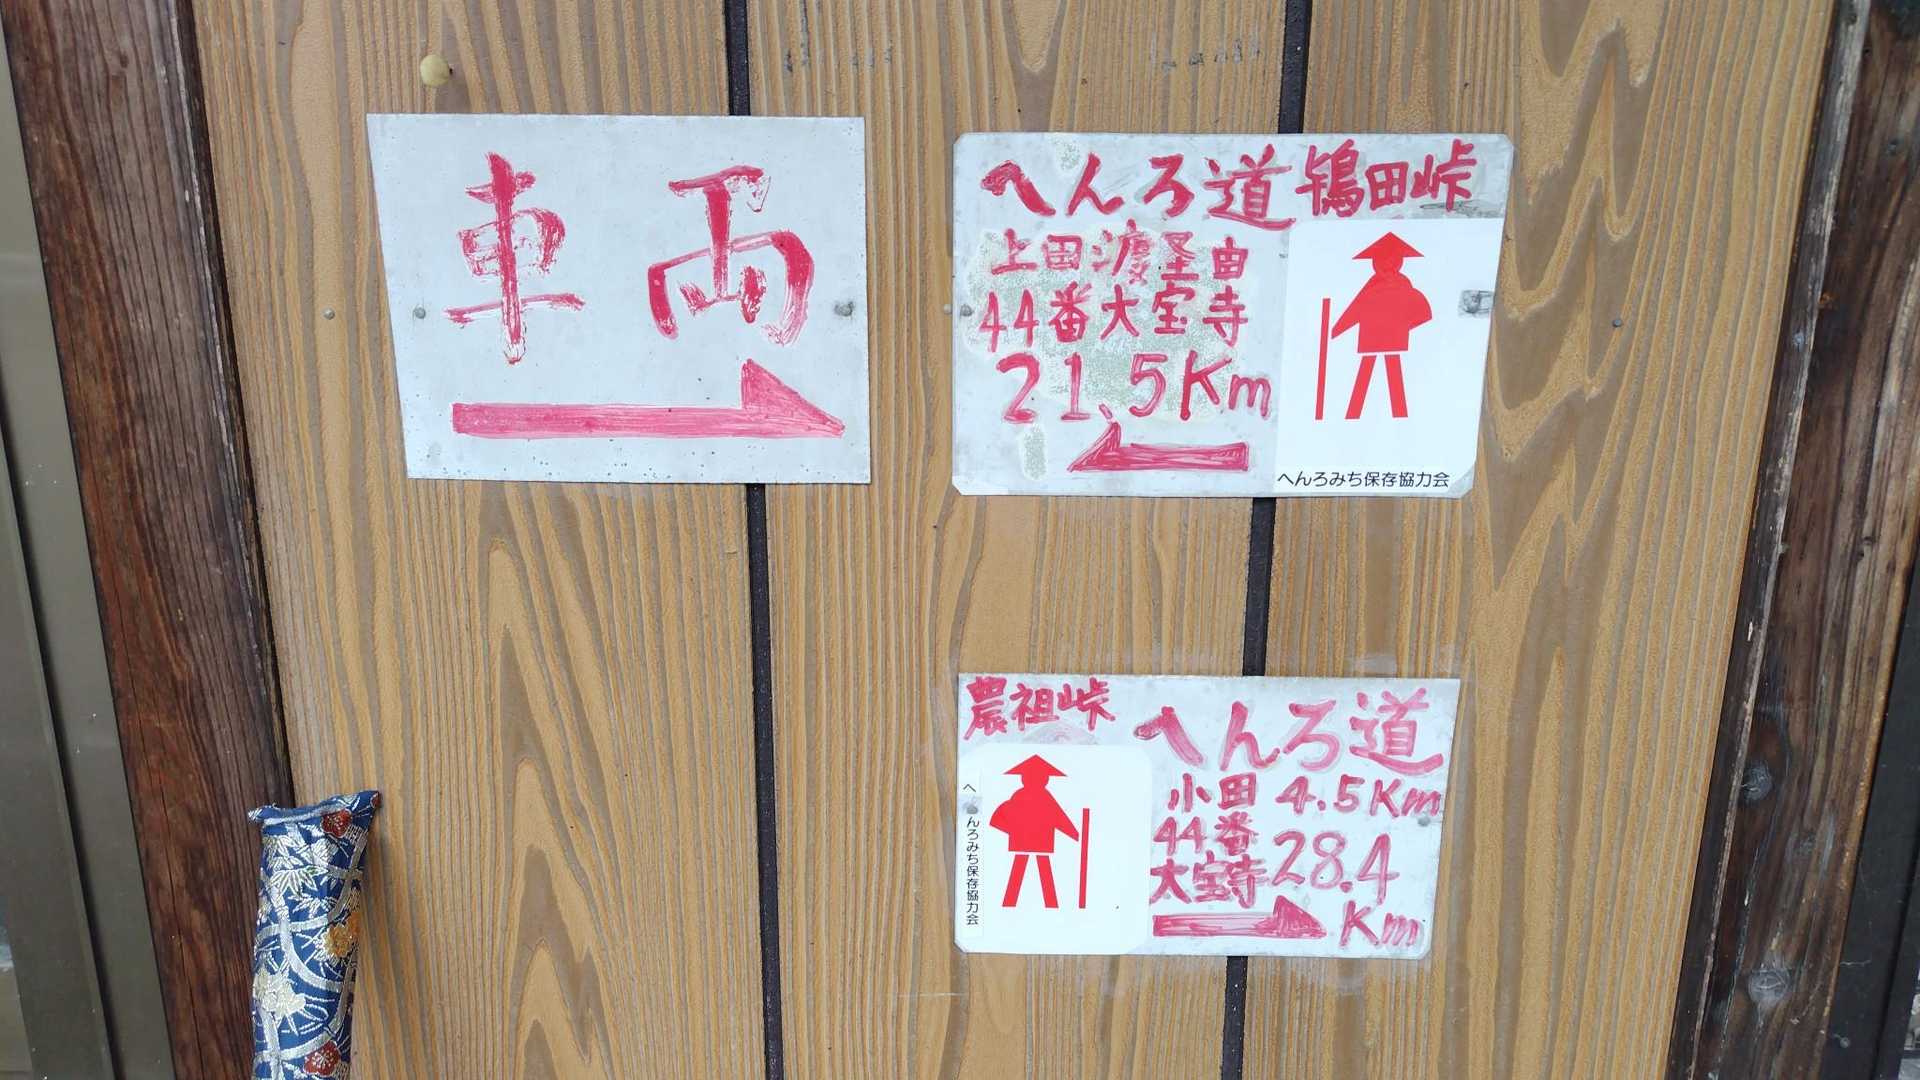 車両
へんろ道 鴇田峠
上田渡経由
44番大宝寺
21.5Km
へんろみち保存協力会
農祖峠
へんろ道
小田 4.5Km
44番
大宝寺 28.4
Km
へんろみち保存協力会